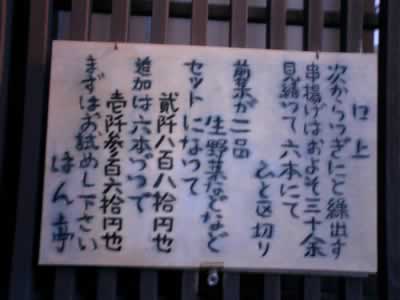 口上
次からつぎにと繰出す
串揚げはおよそ三十余
見繕って六本にて
ひと区切り
前菜が二品
生野菜などなど
セットになって
貳阡八百八拾円也
追加は六本づつで
壱阡参百六拾円也
まずはお試めし下さい
はん亭